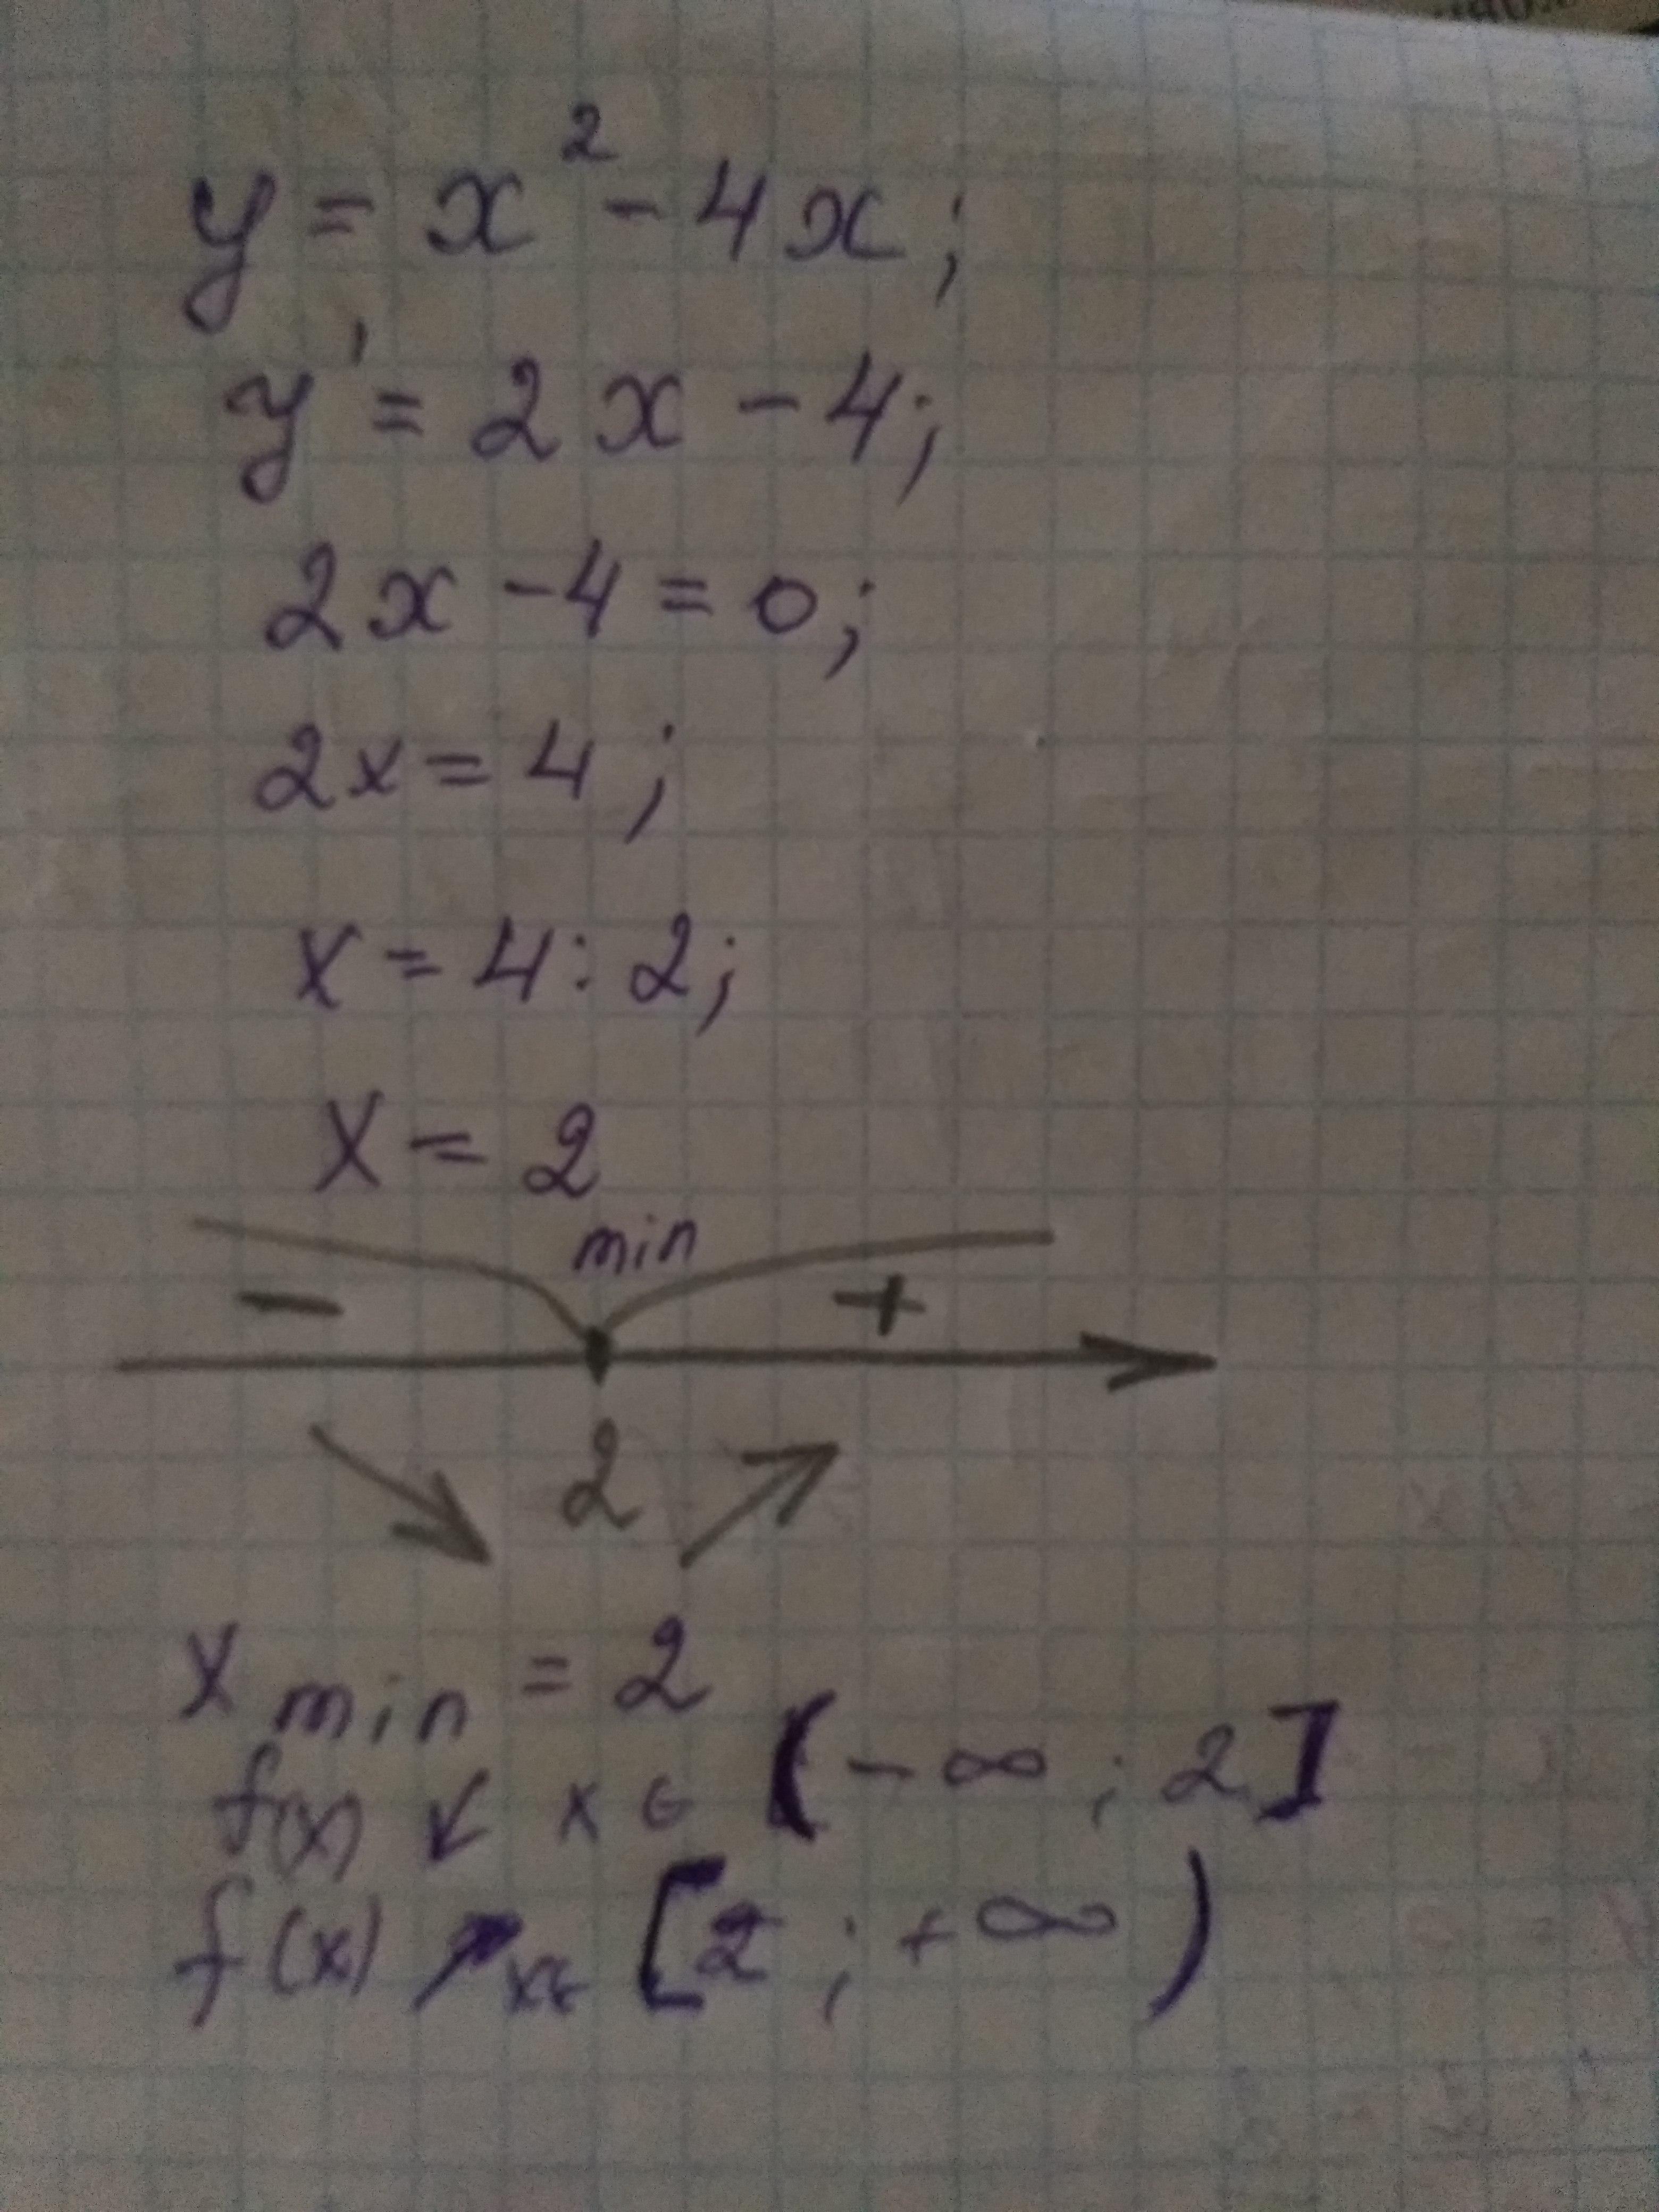 y = x² - 4x;
y' = 2x - 4;
2x - 4 = 0;
2x = 4;
x = 4 : 2;
x = 2
min
- +
2
x min = 2
f(x) ↙ x ∈ (-∞; 2]
f(x) ↗ x ∈ [2; +∞)